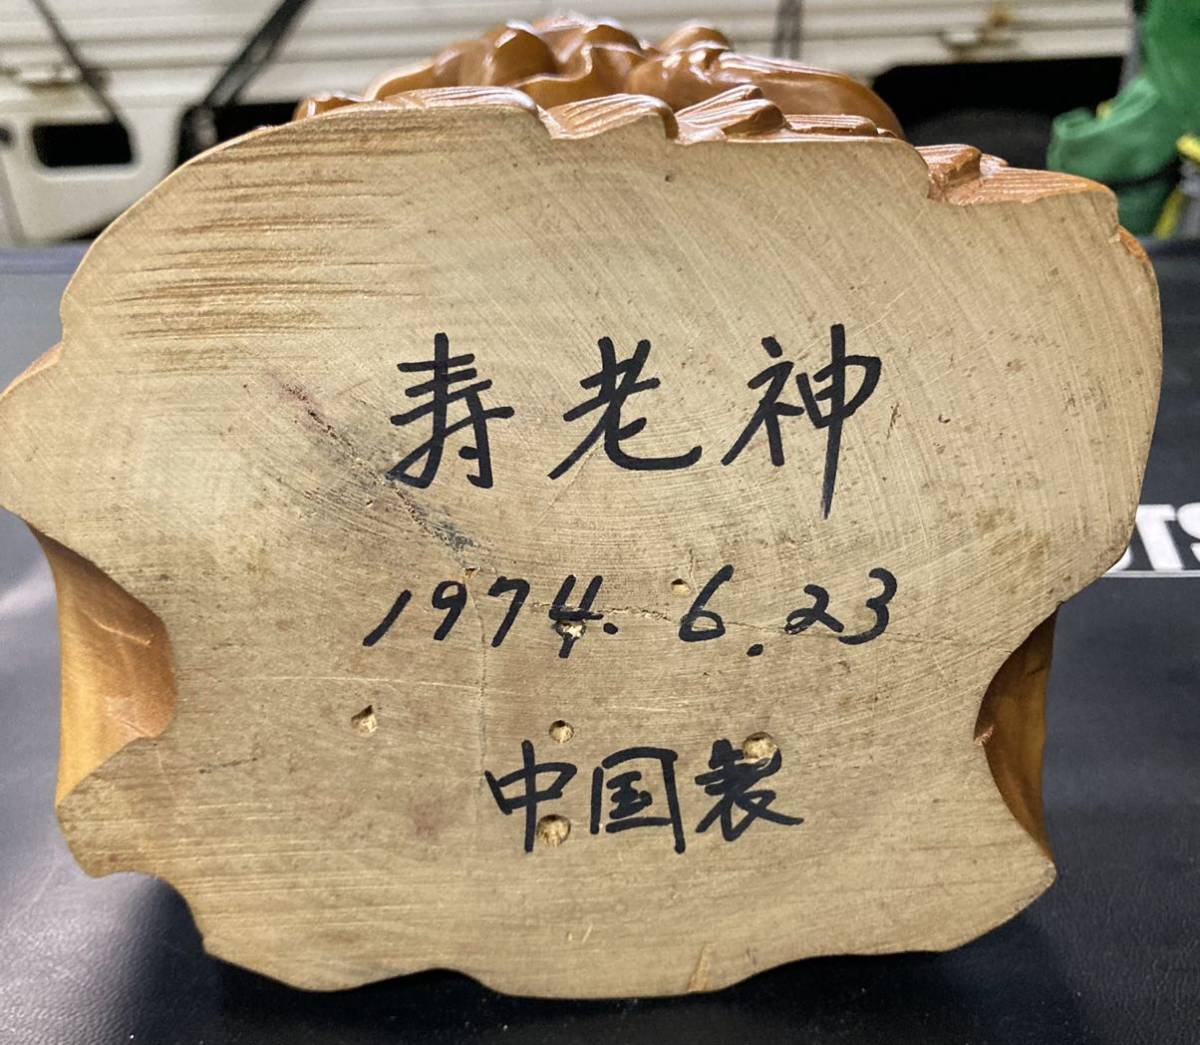 寿老神
1974.6.23
中国製